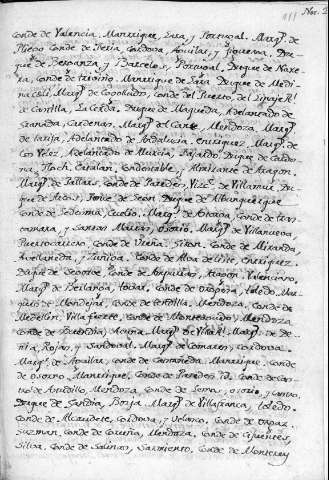 Conde de Valencia, Manrrique, Lara, y Portugal. Marq.s de
Pliego, Conde de Feria, Cordova, Aguilar, y Figueroa. Du-
que de Berganza, y Barcelos, Portugal, Duque de Naxe-
ra, Conde de Triviño, Manrrique de Lara, Duque de Medi-
naceli, Marq.s de Cogolludo, Conde del Puerto, del linaje R.l
de Castilla, La Cerda, Duque de Maqueda, Adelantado de
Granada, Cardenas, Marq.s del Cenete, Mendoza, Marq.s
de Tarifa, Adelantado de Andalucia, Enrriquez, Marq.s de
los Velez, Adelantado de Murcia, Fajardo, Duque de Cardo-
na, Catalan, Condestable, y Almirante de Aragon,
Marq.s de Pallars, Conde de Paredes, Vizc.e de Villamur, Du-
que de Arcos, Ponce de Leon, Duque de Alburquerque
Conde de Ledesma, Cueba, Marq.s de Astorga, Conde de tras-
tamara, y Santas Martas, Osorio, Marq.s de Villanueva
Puertocarrero, Conde de Ureña, Giron, Conde de Miranda,
Avellaneda, y Zuñiga, Conde de Alba de Liste, Enrriquez,
Duque de Segorve, Conde de Ampurias, Aragon, Valenciano,
Marq.s de Berlanga, Tovar, Conde de Oropesa, Toledo, Mar-
ques de Mondejar, Conde de Tendilla, Mendoza, Conde de
Medellin, Villafuerte, Conde de Monteagudo, Mendoza,
Conde de Buendia, Acuña, Marq.s de Denia,
Rojas, y Sandoval, Marq.s de Comares, Cordova,
Marq.s de Aguilar, Conde de Castañeda, Manrrique, Conde
de Osorno, Manrrique, Conde de Paredes, id. Conde de Cas-
tro, Mendoza, Conde de Lemos, Osorio, y Castro,
Duque de Gandia, Borja, Marq.s de Villafranca, Toledo,
Conde de Alcaudete, Cordova, y Velasco, Conde de Orgaz,
Guzman, Conde de Coruña, Mendoza, Conde de Cifuentes,
Silva, Conde de Salinas, Sarmiento, Conde de Monterrey